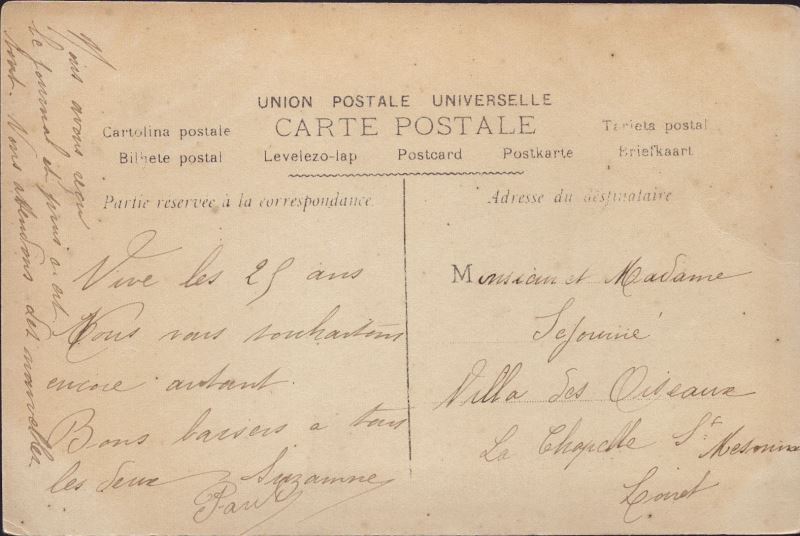 UNION POSTALE UNIVERSELLE
Cartolina postale CARTE POSTALE Tarjeta postal
Bilhete postal Levelezo-lap Postcard Postkarte Briefkaart
Partie reservée à la correspondance.
Adresse du destinataire
Vive les 25 ans
Nous vous souhaitons
encore autant.
Bons baisers a tous
les deux Suzanne
Paul
Monsieur et Madame
Sejourné
Villa des Oiseaux
La Chapelle St Mesmin
Loiret
Nous avons reçu
le journal et
tout. Nous attendons des nouvelles